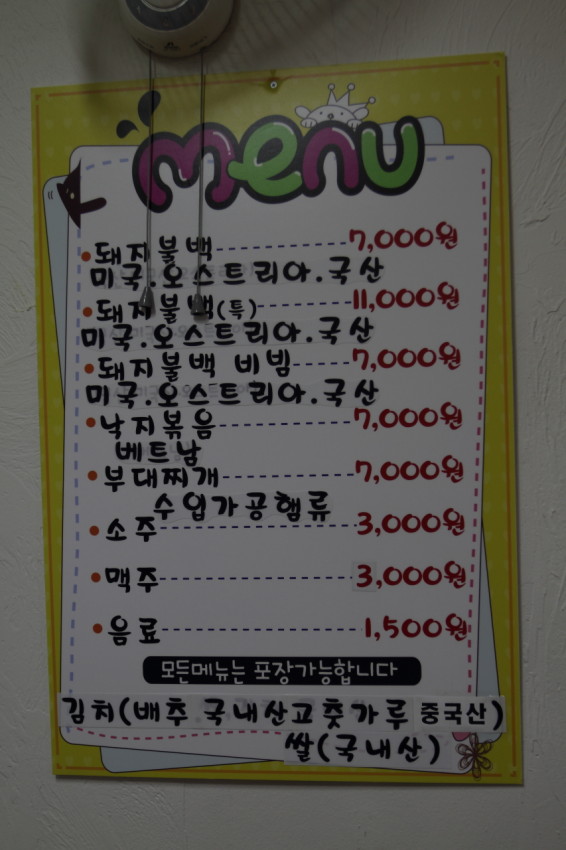 menu
돼지불백 7,000원
미국.오스트리아.국산
돼지불백(특) 11,000원
미국.오스트리아.국산
돼지불백 비빔 7,000원
미국.오스트리아.국산
낙지볶음 7,000원
베트남
부대찌개 7,000원
수입가공햄류
소주 3,000원
맥주 3,000원
음료 1,500원
모든메뉴는 포장가능합니다
김치(배추.국내산고춧가루 중국산)
쌀(국내산)